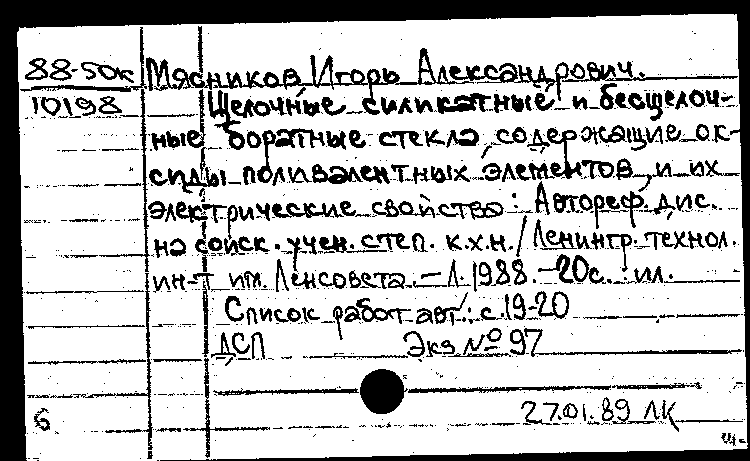 88-50к Мясников, Игорь Александрович.
10198 Щелочные силикатные и бесщелоч-
ные боратные стекла, содержащие ок-
сиды поливалентных элементов, и их
электрические свойства : Автореф. дис.
на соиск. учен. степ. к.х.н. / Ленингр. технол.
ин-т им. Ленсовета. – Л. 1988. – 20с. : ил.
Список работ авт.: с. 19-20
ДСП Экз № 97
6 27.01.89 ЛК
Щ-